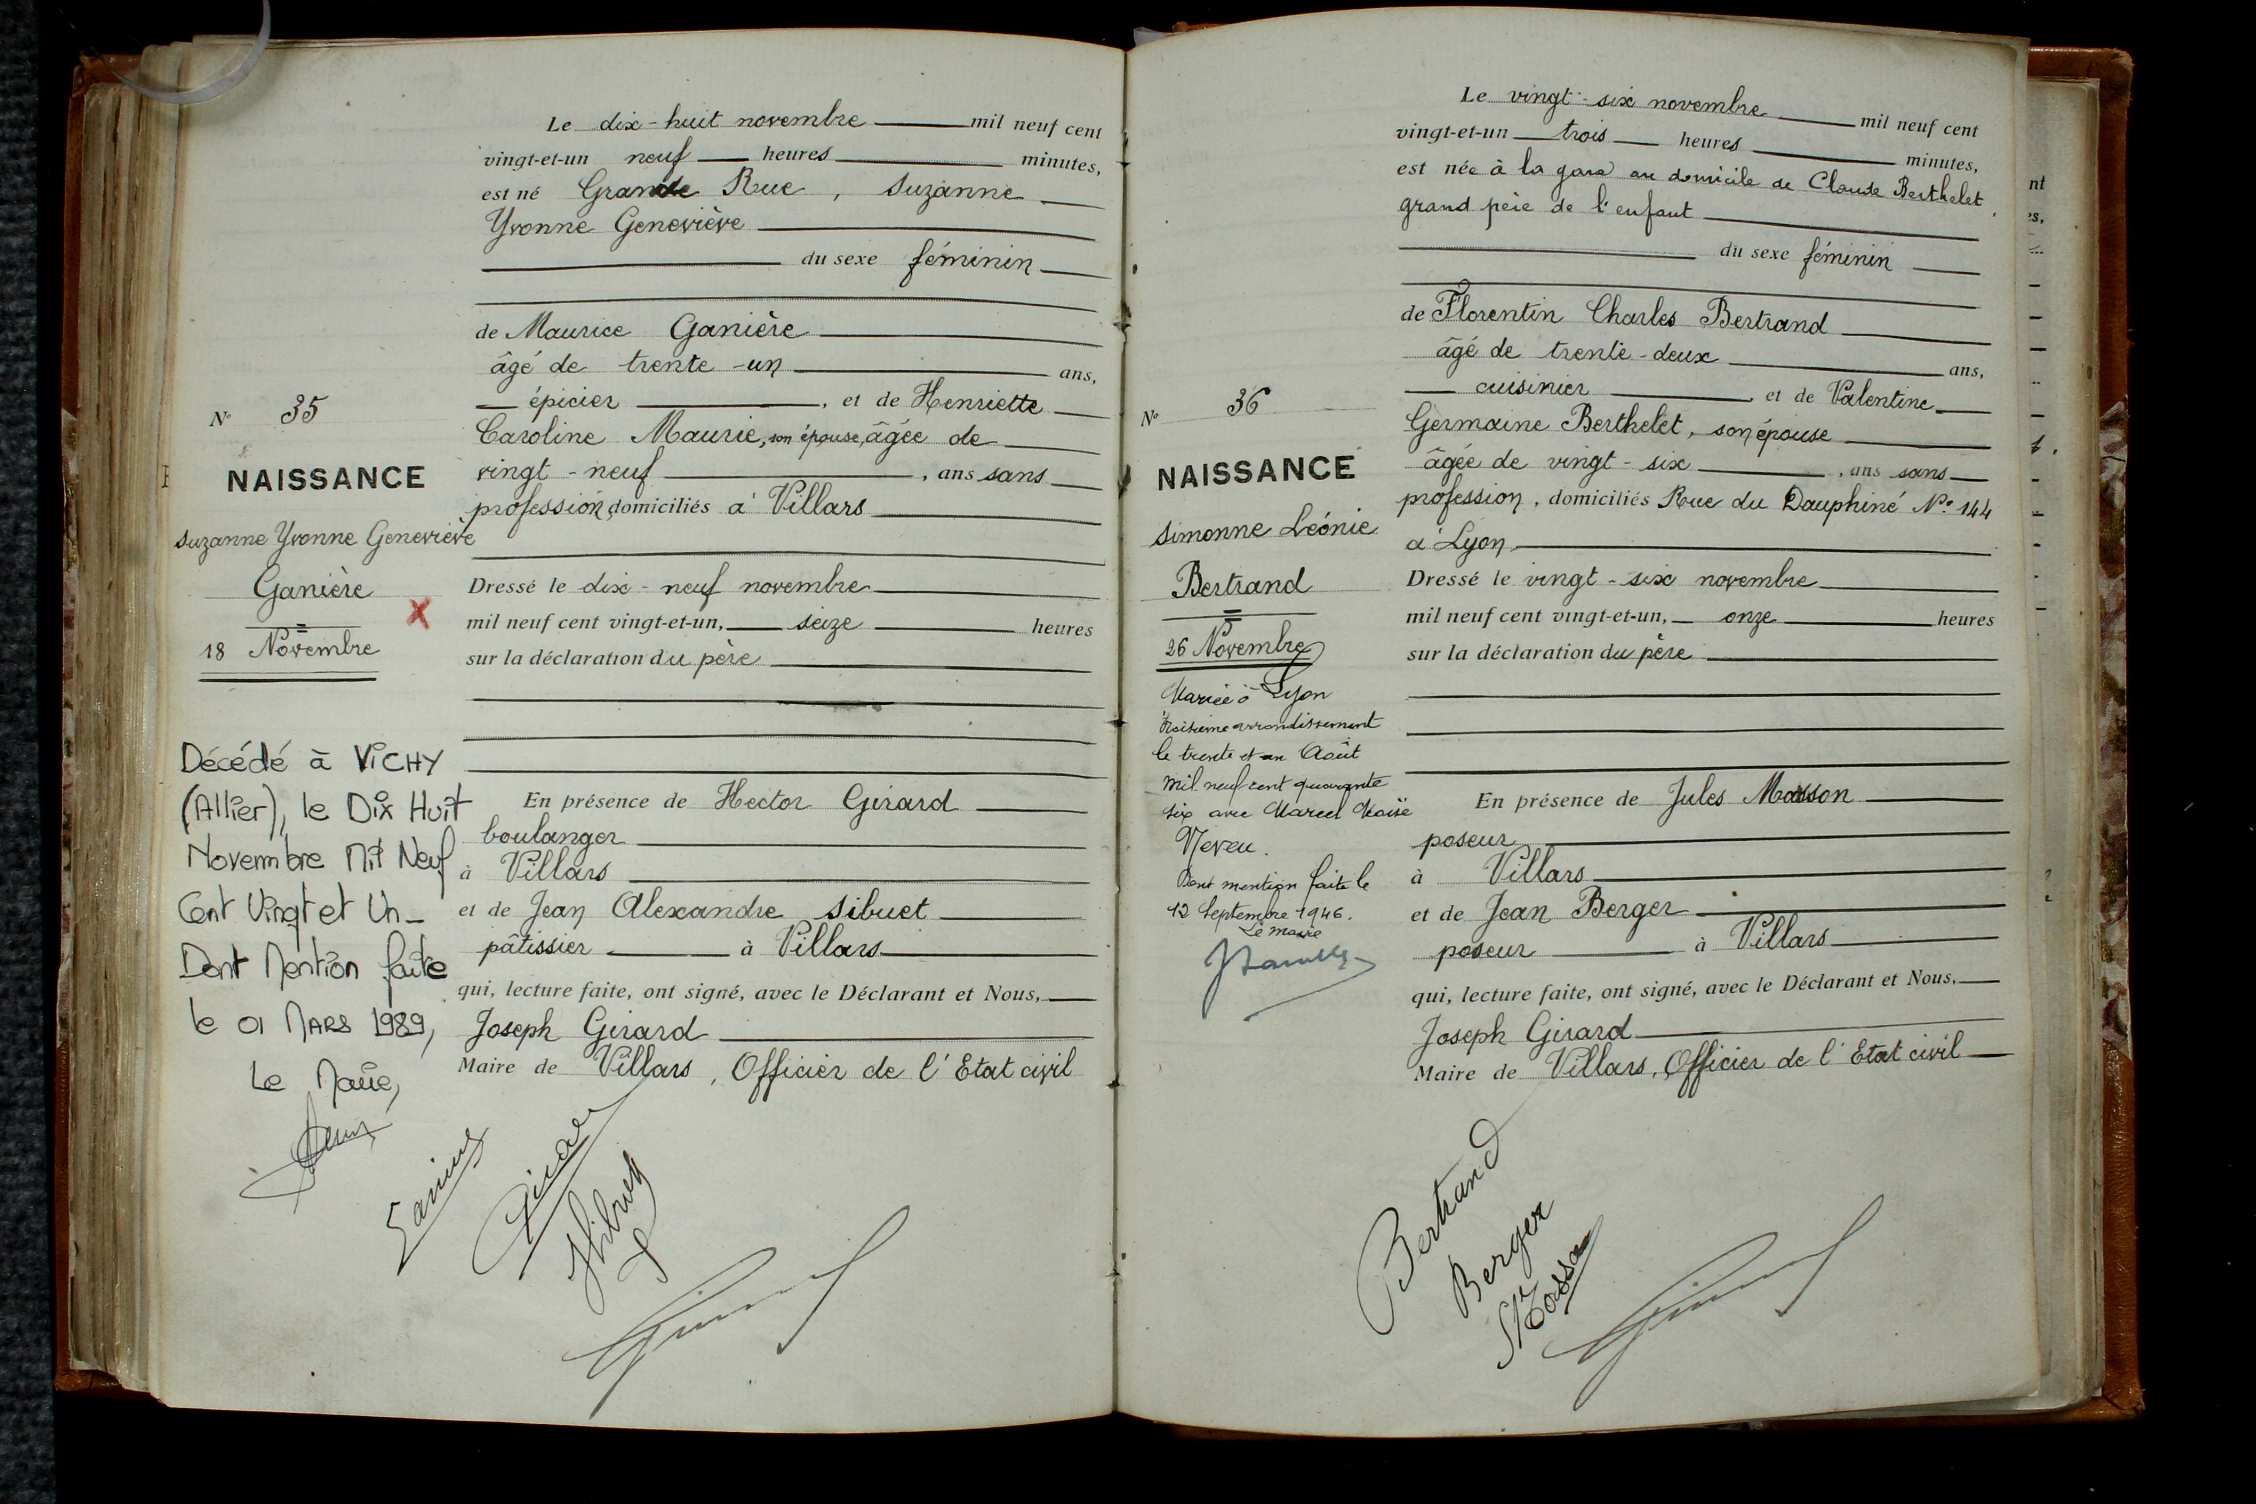 Le dix-huit novembre mil neuf cent
vingt-et-un neuf heures minutes,
est né Grande Rue, Suzanne
Yvonne Geneviève
du sexe féminin
de Maurice Ganière
âgé de trente-un ans,
épicier, et de Henriette
Caroline Maurie, son épouse, âgée de
vingt-neuf, ans sans
profession, domiciliés à Villars
Dressé le dix-neuf novembre
mil neuf cent vingt-et-un, seize heures
sur la déclaration du père
En présence de Hector Girard
boulanger
à Villars
et de Jean Alexandre Sibuet
pâtissier à Villars
qui, lecture faite, ont signé, avec le Déclarant et Nous,
Joseph Girard
Maire de Villars, Officier de l'Etat civil
N° 35
NAISSANCE
Suzanne Yvonne Geneviève
Ganière
X
18 Novembre
Décédé à VICHY
(Allier), le Dix Huit
Novembre Mil Neuf
Cent Vingt et Un-
Dont Mention faite
le 01 MARS 1989,
Le Maire,
Le vingt-six novembre mil neuf cent
vingt-et-un trois heures minutes,
est née à la gare au domicile de Claude Berthelet,
grand père de l'enfant
du sexe féminin
de Florentin Charles Bertrand
âgé de trente-deux ans,
cuisinier, et de Valentine
Germaine Berthelet, son épouse
âgée de vingt-six, ans sans
profession, domiciliés Rue du Dauphiné N° 144
à Lyon
Dressé le vingt-six novembre
mil neuf cent vingt-et-un, onze heures
sur la déclaration du père
En présence de Jules Masson
poseur
à Villars
et de Jean Berger
poseur à Villars
qui, lecture faite, ont signé, avec le Déclarant et Nous,
Joseph Girard
Maire de Villars, Officier de l'Etat civil
N° 36
NAISSANCE
Simonne Léonie
Bertrand
26 Novembre
Mariée à Lyon
troisième arrondissement
le trente et un Août
mil neuf cent quarante
six avec Marcel
Neveu.
Dont mention faite le
12 Septembre 1946.
Le maire
Bertrand
Berger